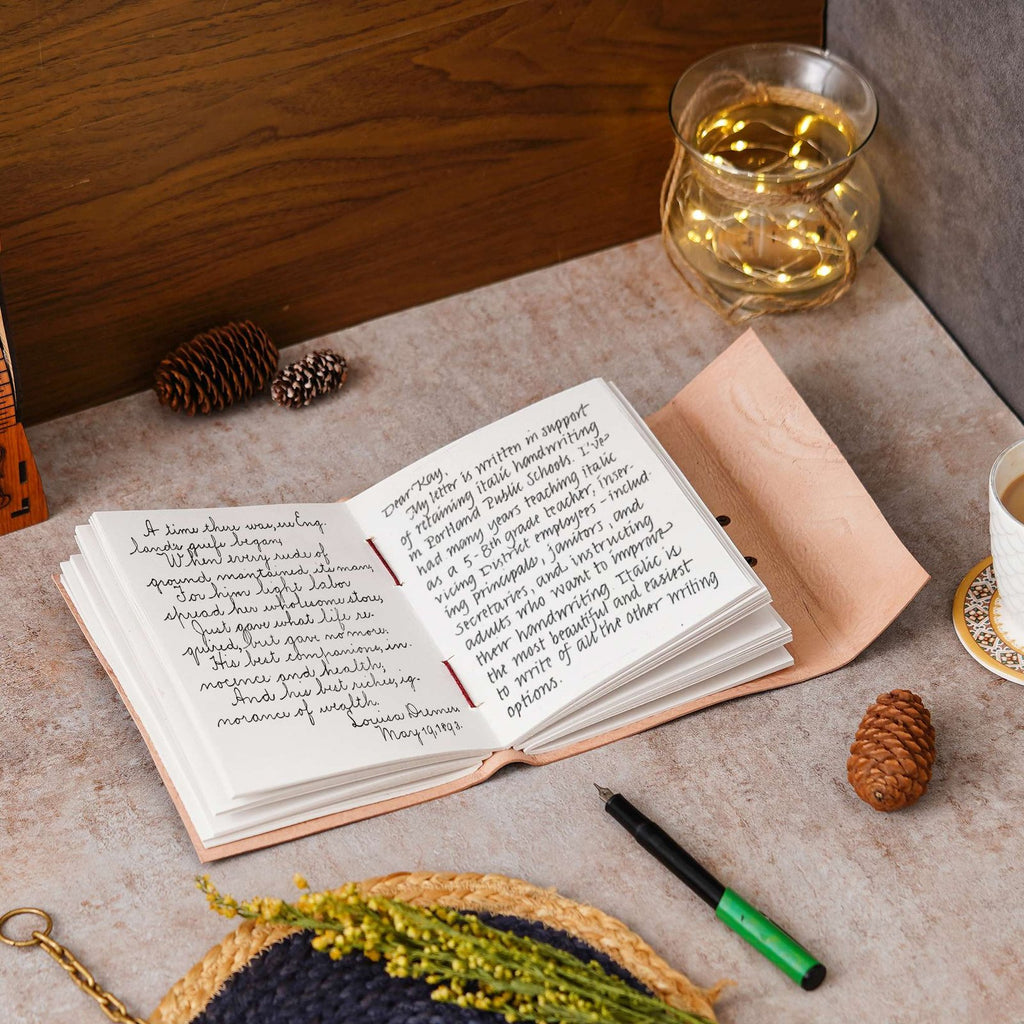 A time there was, ere Eng-
lands griefs began,
When every rude of
ground, maintained its man,
For him light labor
spread her wholesome store,
Just gave what life re-
quired, but gave no more.
His best companions, in-
nocence and health,
And his best riches, ig-
norance of wealth.
Louisa
May 19, 1893.
Dear Kay,
My letter is written in support
of retaining italic handwriting
in Portland Public Schools. I've
had many years teaching italic
as a 5-8th grade teacher, inser-
vicing District employees - includ-
ing principals, janitors, and
secretaries, and instructing
adults who want to improve
their handwriting. Italic is
the most beautiful and easiest
to write of all the other writing
options.